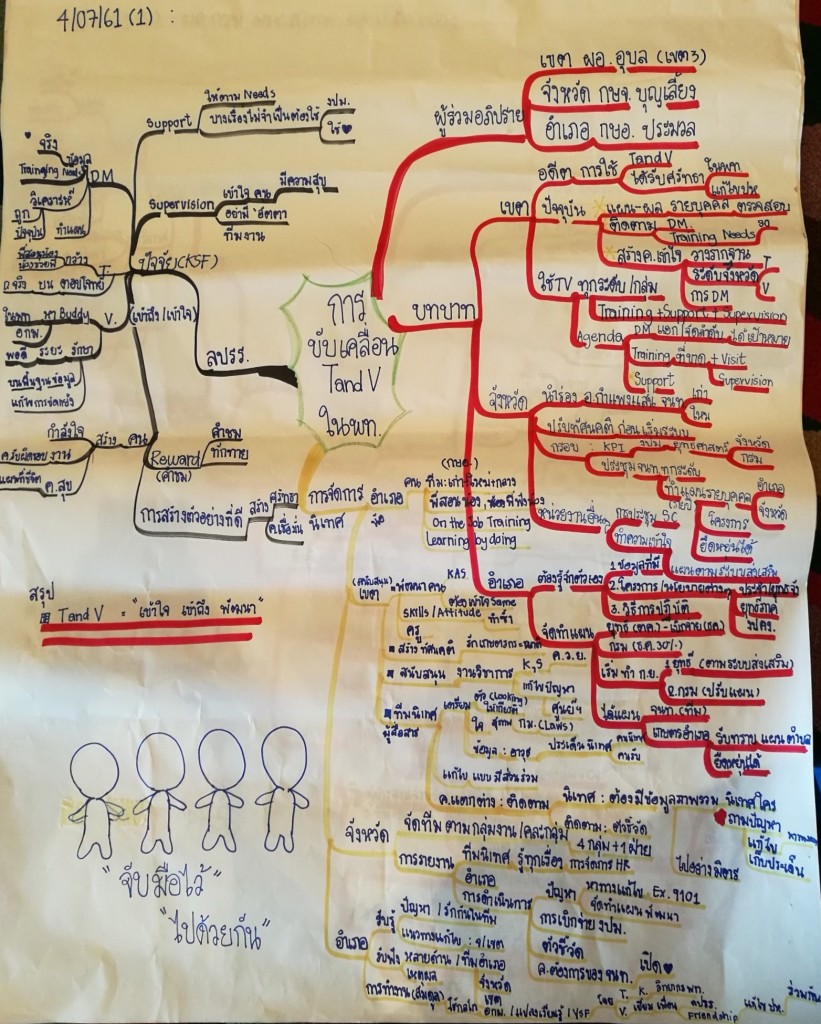 4/07/61 (1) :
การ
ขับเคลื่อน
T and V
ในพท.
ผู้ร่วมอภิปราย
เขต ผอ. อุบล (เขต 3)
จังหวัด กษจ. บุญเลี้ยง
อำเภอ กษอ. ประมวล
บทบาท
เขต
อดีต การใช้ T and V
ได้รับศรัทธา
ในพท
แก้ไขปห
ปัจจุบัน
แผน-ผล รายบุคคล ตรวจสอบ
ติดตาม DM.
Training Needs
30
สร้าง ค.เข้าใจ วางรากฐาน T
ระดับจังหวัด V
การ DM
ใช้ TV ทุกระดับ/กลุ่ม
Training + Support + Supervision
Agenda
DM แยก/จัดลำดับ ได้เป้าหมาย
Training ที่เกิด + Visit
Support Supervision
จังหวัด
นำร่อง อ.กำแพงแสน จนท เก่า
ใหม่
ปรับทัศนคติ ก่อนเริ่มระบบ
กรอบ : KPI งปม. ยุทธศาสตร์ จังหวัด
กรม
ประชุม จนท. ทุกระดับ
ทำแผนรายบุคคล
(รายปี)
อำเภอ
จังหวัด
โครงการ
ยืดหยุ่นได้
หน่วยงานอื่นๆ
การประชุม SC
ทำความเข้าใจ
แผนตามระบบส่งเสริม
อำเภอ
ต้องรู้จักตัวเอง
1. ข้อมูลที่มี
2. โครงการ/นโยบายต่างๆ
3. วิธีการปฏิบัติ
จัดทำแผน
กรม (ธ.ค. 30%)
เริ่มทำ ก.ย. 1. ยุทธ์ (ตามระบบส่งเสริม)
2. กรม (ปรับแผน)
ได้แผน จนท. (ทีม)
เกษตรอำเภอ รับทราบ แผน ตำบล
ยืดหยุ่นได้
สปรร.
ปัจจัย (KSF)
(เข้าถึง/เข้าใจ)
Support
ให้ตาม Needs
บางเรื่องไม่จำเป็นต้องใช้ งปม.
ใช้ ♥
Supervision
เข้าใจ คน มีความสุข
อย่ามี "อัตตา
ทีมงาน
DM
จริง
ข้อมูล
Training Need
วิเคราะห์
ถูก
ปัจจุบัน
T.
พี่สอนน้อง
น้องช่วยพี่
ตอบโจทย์
V.
ในพท. หา Buddy
อกม.
พอดี ระยะ รักษา
บนพื้นฐานข้อมูล
Reward
(คำชม)
คำชม
ทักทาย
สร้าง คน
กำลังใจ
ค.รับผิดชอบ งาน
แผนที่ชีวิต
ค.สุข
การสร้างตัวอย่างที่ดี
สร้าง ศรัทธา
ค.เชื่อมั่น
การจัดการ
นิเทศ
อำเภอ
(กษอ.)
คน ทีม: เก่า-ใหม่+กลาง
พี่สอนน้อง,
On the Job Training
Learning by doing
(สนับสนุน)
เขต
พัฒนาคน KAS
ต้องเข้าใจ Same
Skills / Attitude ทำซ้ำ
ครู
สร้างทัศนคติ
ค.ว.ย.
สนับสนุน งานวิชาการ K,S
แก้ไขปัญหา
ศูนย์ฯ
ทีมนิเทศ
ผู้สื่อสาร
เตรียม ตัว (Looking)
ใจ สุภาพ กม. (Laws)
ข้อมูล : อาวุธ ประเด็น นิเทศ คนนิเทศ
คนรับ
แก้ไข แบบ มีส่วนร่วม
ค.แตกต่าง : ติดตาม นิเทศ : ต้องมีข้อมูลภาพรวม นิเทศใคร
ถามปัญหา
แก้ไข
เก็บประเด็น
ไปอย่างมิตร
จังหวัด
จัดทีม ตามกลุ่มงาน/คละกลุ่ม ติดตาม : ตัวชี้วัด
4 กลุ่ม + 1 ฝ่าย
การรายงาน ทีมนิเทศ รู้ทุกเรื่อง การจัดการ HR
อำเภอ
การดำเนินการ
ปัญหา หาทางแก้ไข Ex. 9101
จัดทำแผน พัฒนา
การเบิกจ่าย งปม.
ตัวชี้วัด
ค.ต้องการของ จนท. เปิด ♥
อำเภอ
รับรู้ ปัญหา / รักกันในทีม
แนวทางแก้ไข : จ/เขต
รับฟัง หลายด้าน / ทีมอำเภอ
เหตุผล
การทำงาน (สมดุล)
จังหวัด
เขต
อกม. / แปลงเรียนรู้ / YSF
โดย T. K. วิทยากร พท.
V. เยี่ยมเพื่อน
Friendship
แก้ไข ปห.
สรุป
T and V = "เข้าใจ เข้าถึง พัฒนา"
"จับมือไว้"
"ไปด้วยกัน"